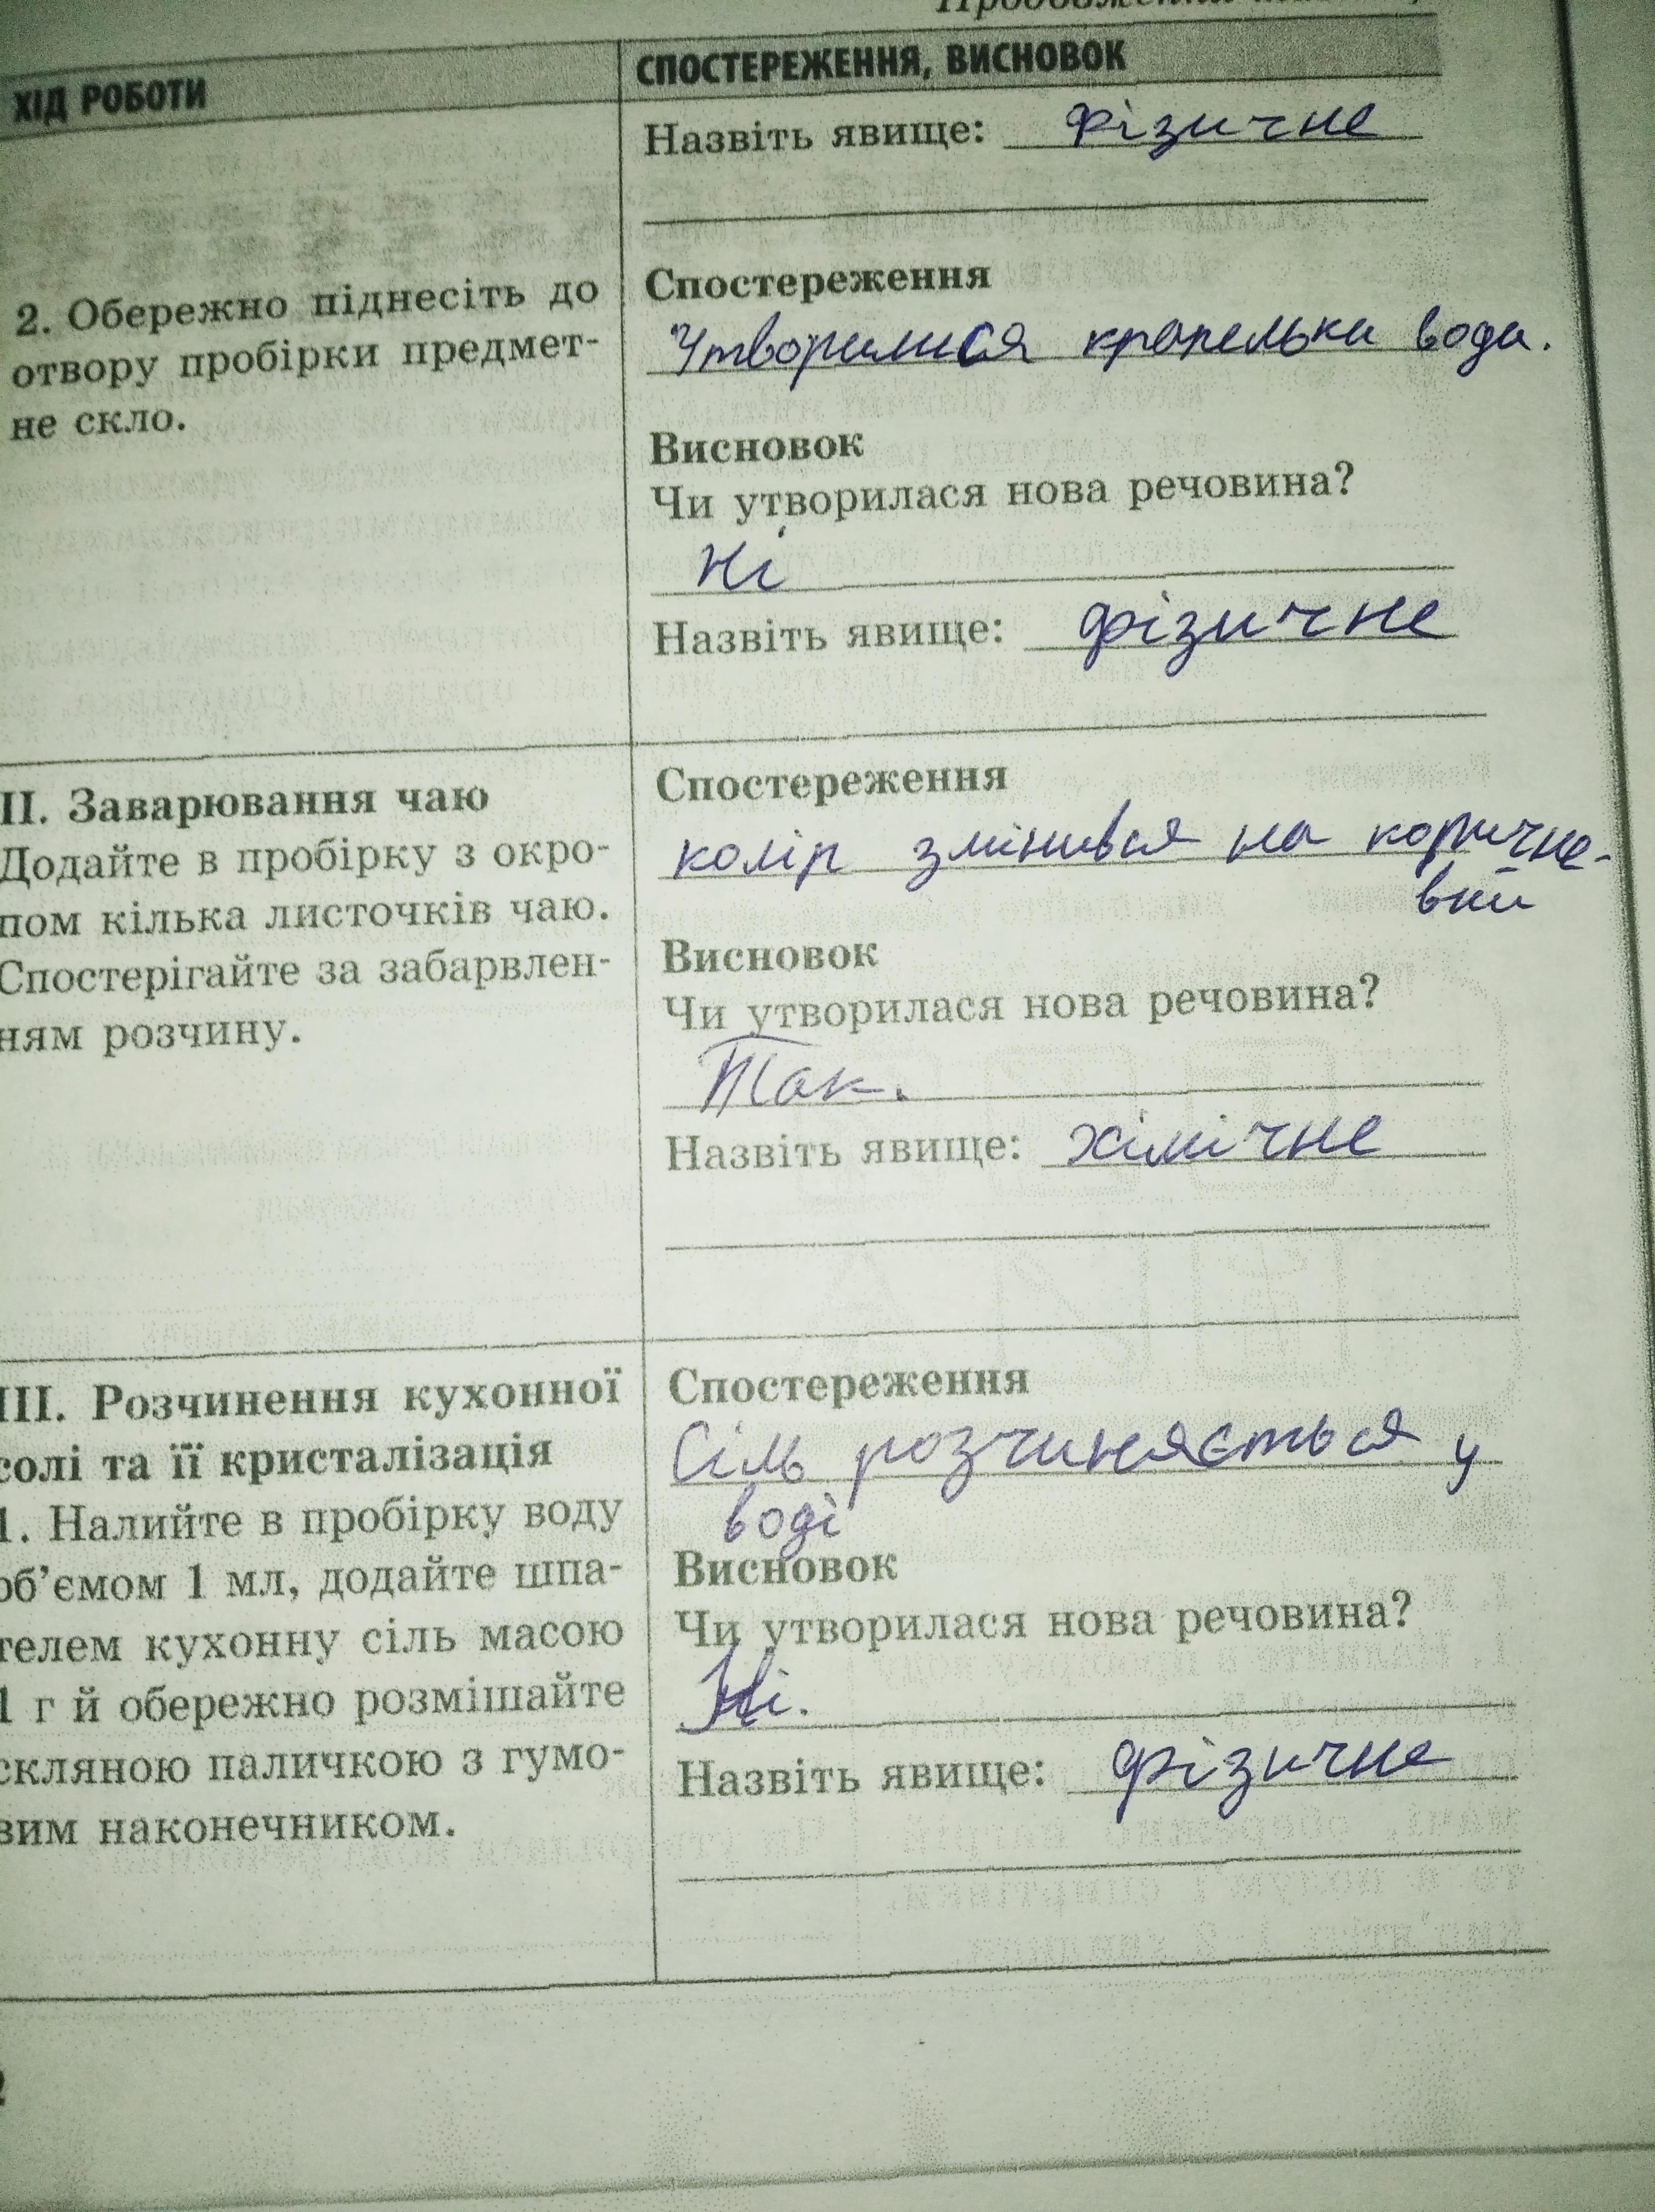 ХІД РОБОТИ
СПОСТЕРЕЖЕННЯ, ВИСНОВОК
Назвіть явище: фізичне
2. Обережно піднесіть до
отвору пробірки предмет-
не скло.
Спостереження
Утворилися крапельки води.
Висновок
Чи утворилася нова речовина?
Ні
Назвіть явище: фізичне
ІІ. Заварювання чаю
Додайте в пробірку з окро-
пом кілька листочків чаю.
Спостерігайте за забарвлен-
ням розчину.
Спостереження
колір змінився на коричне-
вий
Висновок
Чи утворилася нова речовина?
Так.
Назвіть явище: хімічне
ІІІ. Розчинення кухонної
солі та її кристалізація
1. Налийте в пробірку воду
об’ємом 1 мл, додайте шпа-
телем кухонну сіль масою
1 г й обережно розмішайте
скляною паличкою з гумо-
вим наконечником.
Спостереження
Сіль розчиняється у
воді
Висновок
Чи утворилася нова речовина?
Ні.
Назвіть явище: фізичне